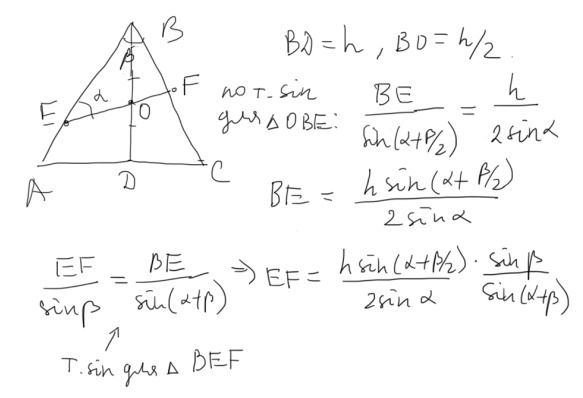 B
β
E α F
O
A D C
BD = h, BO = h/2.
по т. sin для △OBE: BE/sin(α+β/2) = h/2sinα
BE = h sin(α+β/2)/2sinα
EF/sinβ = BE/sin(α+β) ⇒ EF = h sin(α+β/2)/2sinα · sinβ/sin(α+β)
Т. sin для △ BEF